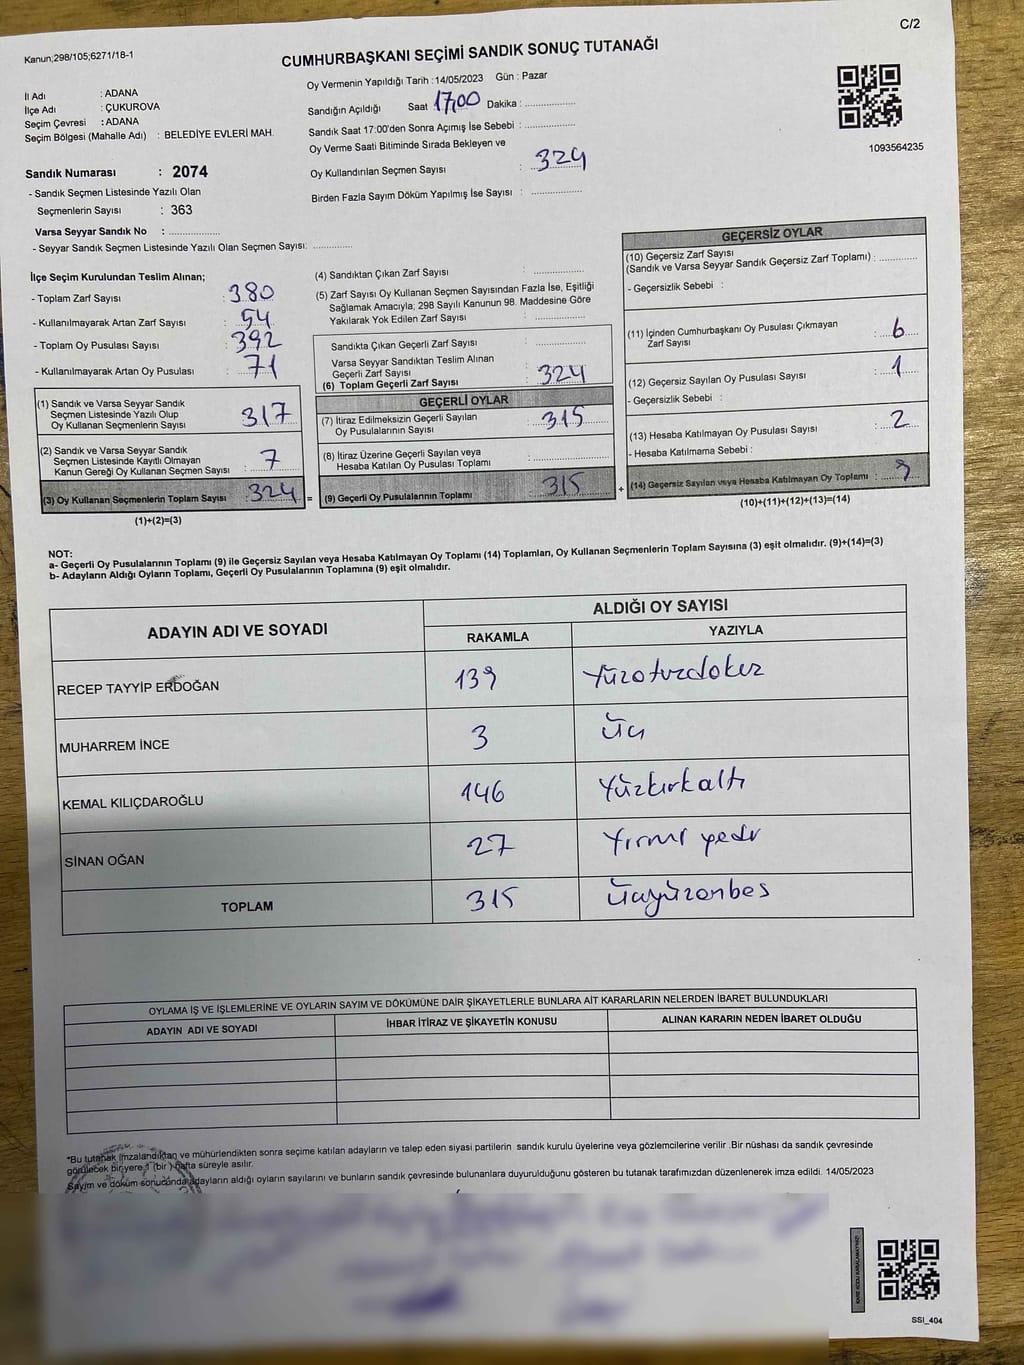 C/2
Kanun;298/105;6271/18-1
CUMHURBAŞKANI SEÇİMİ SANDIK SONUÇ TUTANAĞI
İl Adı : ADANA
İlçe Adı : ÇUKUROVA
Seçim Çevresi : ADANA
Seçim Bölgesi (Mahalle Adı) : BELEDİYE EVLERİ MAH.
Sandık Numarası : 2074
- Sandık Seçmen Listesinde Yazılı Olan
Seçmenlerin Sayısı : 363
Varsa Seyyar Sandık No : ................
- Seyyar Sandık Seçmen Listesinde Yazılı Olan Seçmen Sayısı: ............
Oy Vermenin Yapıldığı Tarih : 14/05/2023 Gün : Pazar
Sandığın Açıldığı Saat 17,00 Dakika : ................
Sandık Saat 17:00'den Sonra Açımış İse Sebebi : ................
Oy Verme Saati Bitiminde Sırada Bekleyen ve
Oy Kullandırılan Seçmen Sayısı : 324
Birden Fazla Sayım Döküm Yapılmış İse Sayısı : ................
1093564235
İlçe Seçim Kurulundan Teslim Alınan;
- Toplam Zarf Sayısı : 380
- Kullanılmayarak Artan Zarf Sayısı : 54
- Toplam Oy Pusulası Sayısı : 392
- Kullanılmayarak Artan Oy Pusulası : 71
(1) Sandık ve Varsa Seyyar Sandık
Seçmen Listesinde Yazılı Olup
Oy Kullanan Seçmenlerin Sayısı : 317
(2) Sandık ve Varsa Seyyar Sandık
Seçmen Listesinde Kayıtlı Olmayan
Kanun Gereği Oy Kullanan Seçmen Sayısı : 7
(3) Oy Kullanan Seçmenlerin Toplam Sayısı : 324 =
(1)+(2)=(3)
(4) Sandıktan Çıkan Zarf Sayısı : ................
(5) Zarf Sayısı Oy Kullanan Seçmen Sayısından Fazla İse, Eşitliği
Sağlamak Amacıyla; 298 Sayılı Kanunun 98. Maddesine Göre
Yakılarak Yok Edilen Zarf Sayısı : ................
Sandıkta Çıkan Geçerli Zarf Sayısı : ................
Varsa Seyyar Sandıktan Teslim Alınan
Geçerli Zarf Sayısı
(6) Toplam Geçerli Zarf Sayısı : 324
GEÇERLİ OYLAR
(7) İtiraz Edilmeksizin Geçerli Sayılan
Oy Pusulalarının Sayısı : 315
(8) İtiraz Üzerine Geçerli Sayılan veya
Hesaba Katılan Oy Pusulası Toplamı : ................
(9) Geçerli Oy Pusulalarının Toplamı : 315 +
GEÇERSİZ OYLAR
(10) Geçersiz Zarf Sayısı
(Sandık ve Varsa Seyyar Sandık Geçersiz Zarf Toplamı) : ............
- Geçersizlik Sebebi :
(11) İçinden Cumhurbaşkanı Oy Pusulası Çıkmayan
Zarf Sayısı : 6
(12) Geçersiz Sayılan Oy Pusulası Sayısı : 1
- Geçersizlik Sebebi :
(13) Hesaba Katılmayan Oy Pusulası Sayısı : 2
- Hesaba Katılmama Sebebi :
(14) Geçersiz Sayılan veya Hesaba Katılmayan Oy Toplamı : 9
(10)+(11)+(12)+(13)=(14)
NOT:
a- Geçerli Oy Pusulalarının Toplamı (9) ile Geçersiz Sayılan veya Hesaba Katılmayan Oy Toplamı (14) Toplamları, Oy Kullanan Seçmenlerin Toplam Sayısına (3) eşit olmalıdır. (9)+(14)=(3)
b- Adayların Aldığı Oyların Toplamı, Geçerli Oy Pusulalarının Toplamına (9) eşit olmalıdır.
ADAYIN ADI VE SOYADI ALDIĞI OY SAYISI
RAKAMLA YAZIYLA
RECEP TAYYİP ERDOĞAN 139 Yüzotuzdokuz
MUHARREM İNCE 3 Üç
KEMAL KILIÇDAROĞLU 146 Yüzkırkaltı
SİNAN OĞAN 27 Yirmi yedi
TOPLAM 315 Üçyüzonbes
OYLAMA İŞ VE İŞLEMLERİNE VE OYLARIN SAYIM VE DÖKÜMÜNE DAİR ŞİKAYETLERLE BUNLARA AİT KARARLARIN NELERDEN İBARET BULUNDUKLARI
ADAYIN ADI VE SOYADI İHBAR İTİRAZ VE ŞİKAYETİN KONUSU ALINAN KARARIN NEDEN İBARET OLDUĞU
*Bu tutanak imzalandıktan ve mühürlendikten sonra seçime katılan adayların ve talep eden siyasi partilerin sandık kurulu üyelerine veya gözlemcilerine verilir .Bir nüshası da sandık çevresinde
görülecek bir yere 1 (bir) hafta süreyle asılır.
Sayım ve döküm sonucunda adayların aldığı oyların sayılarını ve bunların sandık çevresinde bulunanlara duyurulduğunu gösteren bu tutanak tarafımızdan düzenlenerek imza edildi. 14/05/2023
SSI_404